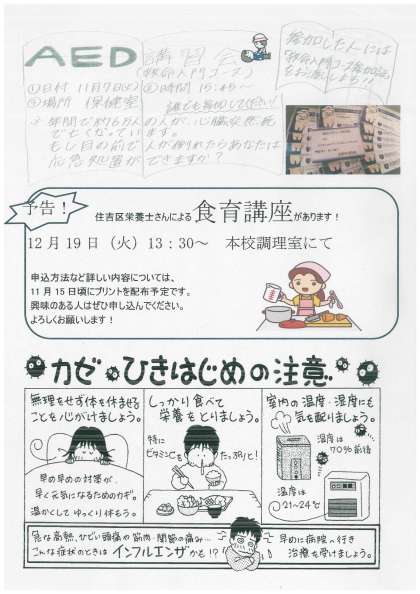 AED 講習会
(救命入門コース)
参加した人には
「救命入門コース参加証」
をお渡しします!
①日付 11月7日(火) ②時間 15:45~
③場所 保健室 誰でも参加してください!
年間で約6万人の人が、心臓突然死
で亡くなっています。
もし目の前で人が倒れたらあなたは
応急処置ができますか?
予告!
住吉区栄養士さんによる 食育講座 があります!
12月19日(火)13:30~ 本校調理室にて
申込方法など詳しい内容については、
11月15日頃にプリントを配布予定です。
興味のある人はぜひ申し込んでください。
よろしくお願いします!
カゼ・ひきはじめの注意
無理をせず体を休ませる
ことを心がけましょう。
早め早めの対策が、
早く元気になるためのカギ。
温かくしてゆっくり休もう。
しっかり食べて
栄養をとりましょう。
特に
ビタミンCを
たっぷりと!
室内の温度・湿度にも
気を配りましょう。
湿度は
70%前後
温度は
21~24℃
急な高熱、ひどい頭痛や筋肉・関節の痛み…
こんな症状のときは インフルエンザかも!?
早めに病院へ行き
治療を受けましょう。